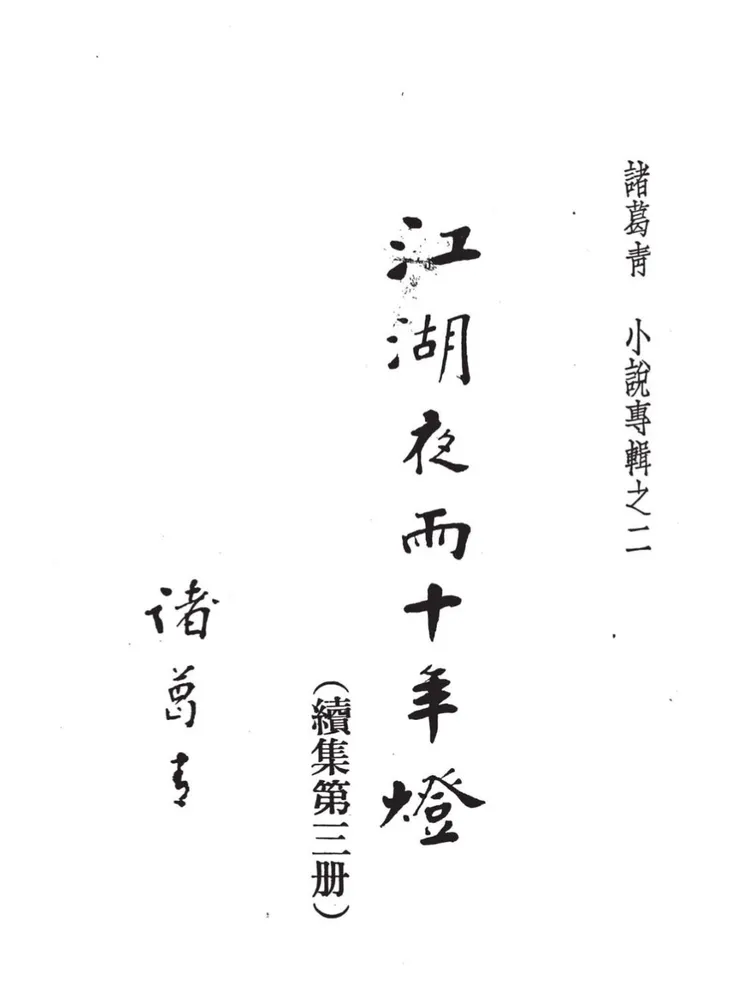 諸葛靑 小說專輯之二
江湖夜雨十年燈
(續集第三册)
诸葛青